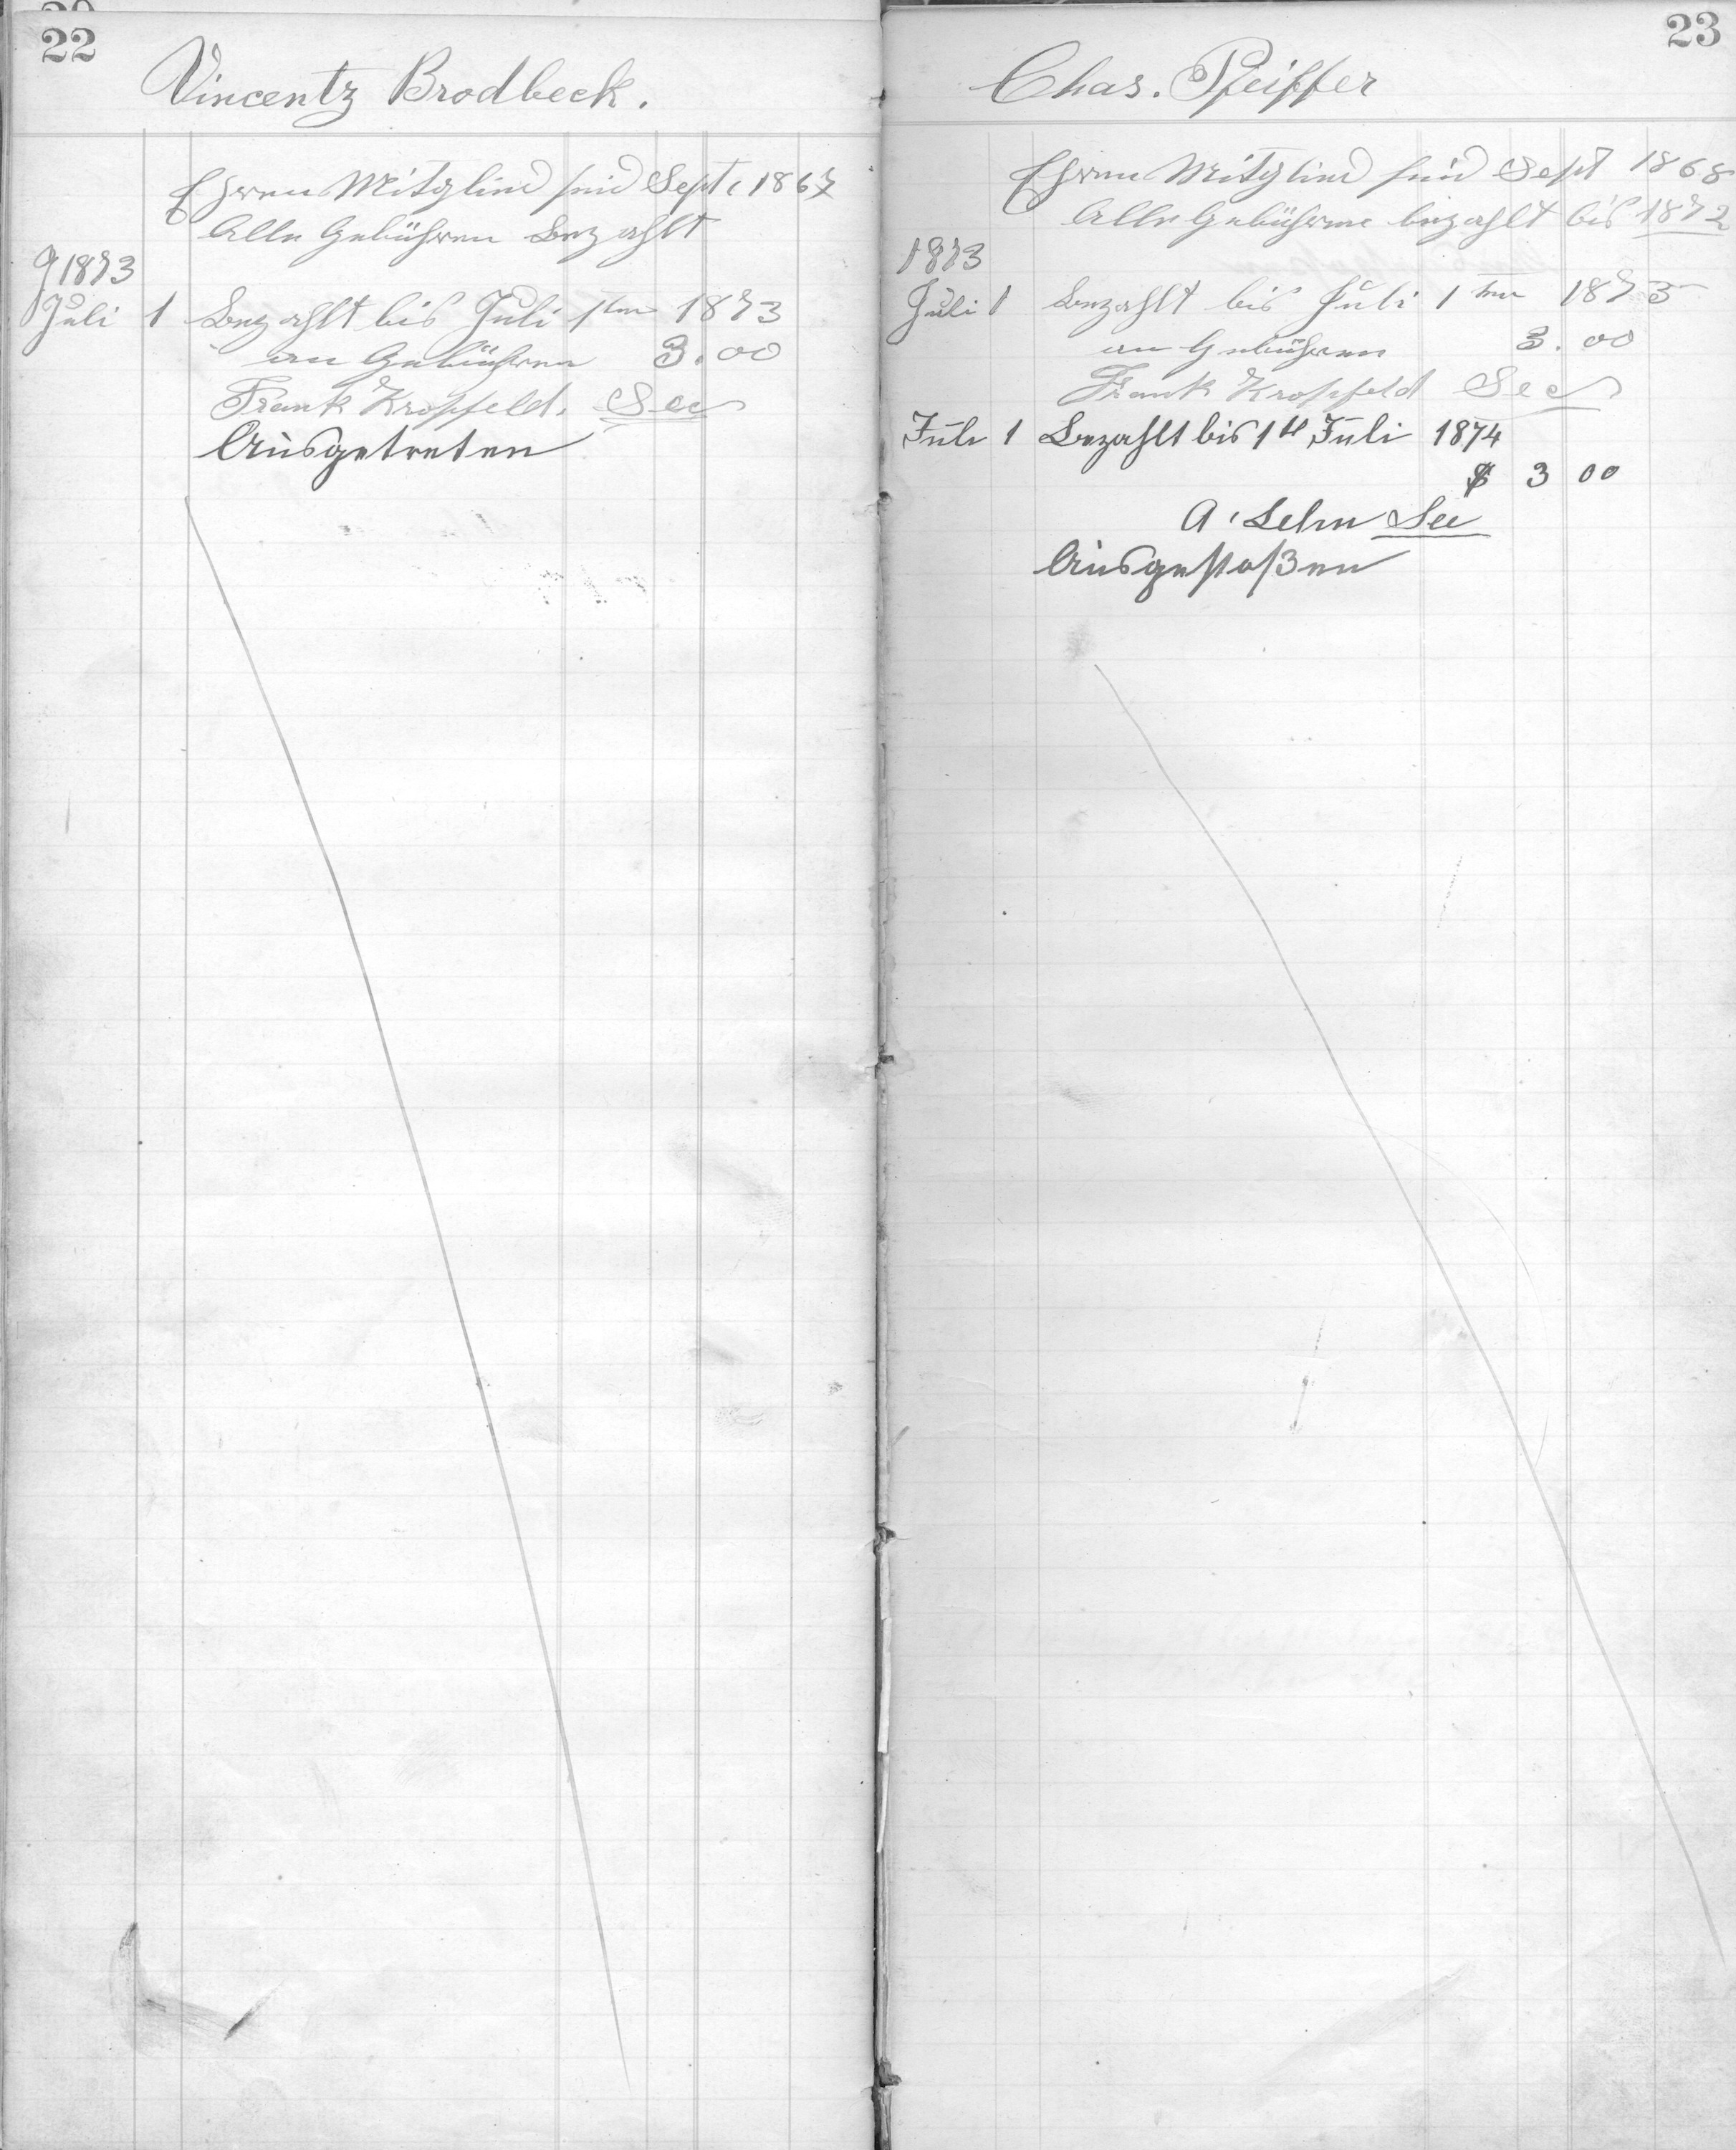 20
22
Vincentz Brodbeck.
Ehren Mitglied seid Sept. 1867
Alle Gebühren bezahlt
1873
Juli 1 Bezahlt bis Juli 1ten 1873
an Gebühren 3.00
Frank Kropfeld. Sec
Ausgetreten
23
Chas. Pfeiffer
Ehren Mitglied seid Sept 1868
Alle Gebühren bezahlt bis 1872
1873
Juli 1 Bezahlt bis Juli 1ten 1873
an Gebühren 3.00
Frank Kropfeld Sec
Juli 1 Bezahlt bis 1te Juli 1874
$ 3 00
A. Lehn Sec
Ausgestoßen